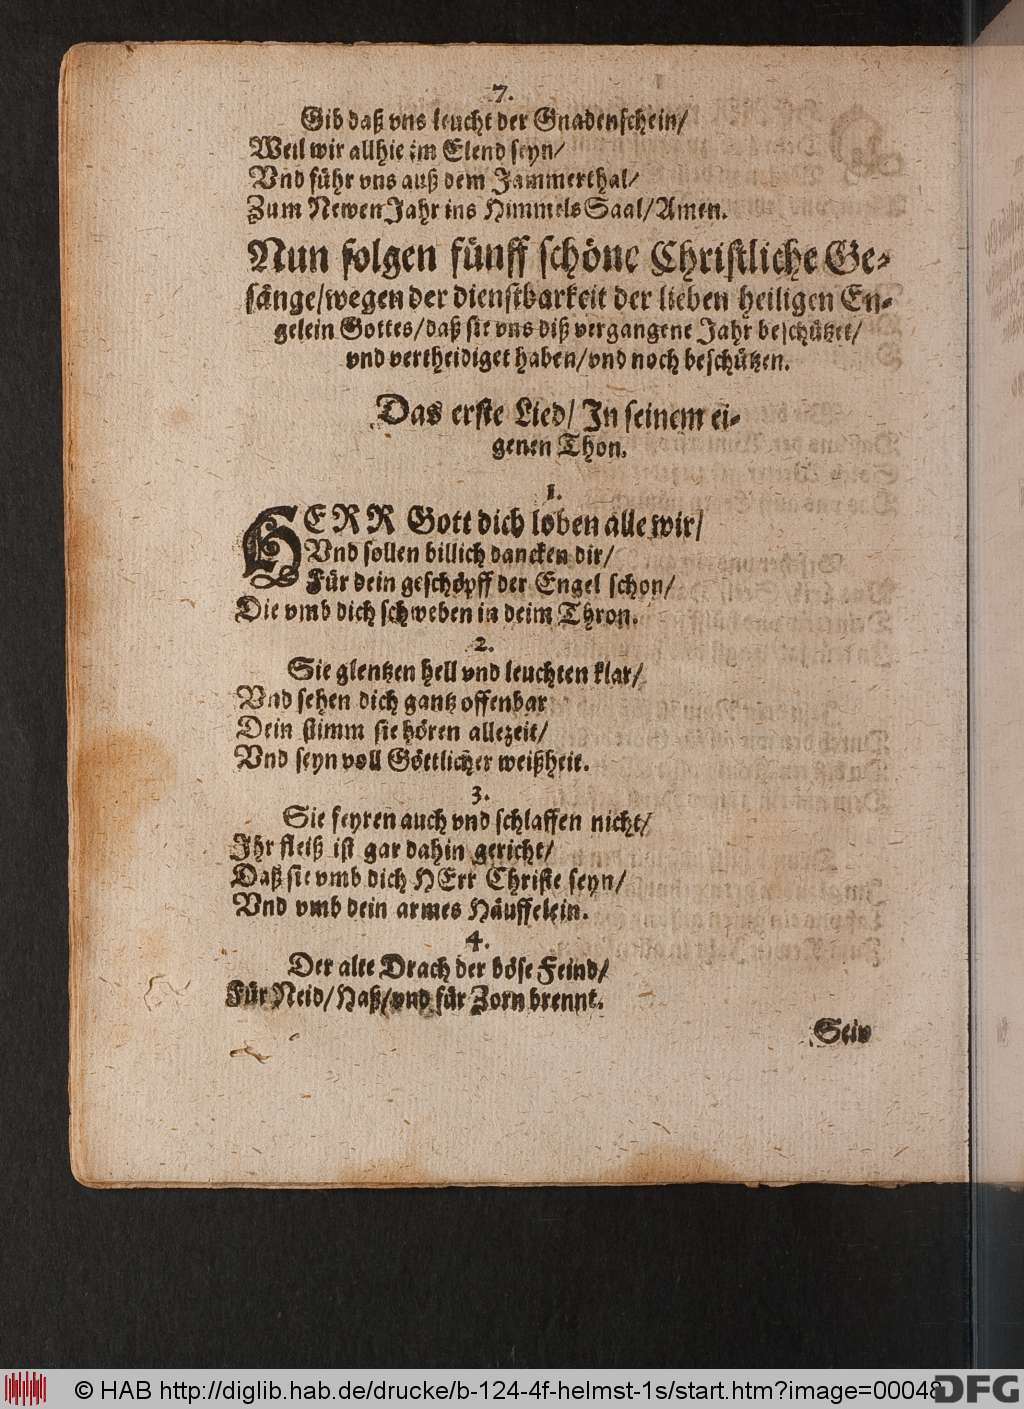 7.
Gib daß vns leucht der Gnadenschein/
Weil wir allhie im Elend seyn/
Vnd führ vns auß dem Jammerthal/
Zum Newen Jahr ins Himmels Saal/Amen.
Nun folgen fünff schöne Christliche Ge-
sänge/wegen der dienstbarkeit der lieben heiligen En-
gelein Gottes/daß sie vns diß vergangene Jahr beschützet/
vnd vertheidiget haben/vnd noch beschützen.
Das erste Lied/ In seinem ei-
genen Thon.
1.
HERR Gott dich loben alle wir/
Vnd sollen billich dancken dir/
Für dein geschöpff der Engel schon/
Die vmb dich schweben in deim Thron.
2.
Sie glentzen hell vnd leuchten klar/
Vnd sehen dich gantz offenbar
Dein stimm sie hören allezeit/
Vnd seyn voll Göttlicher weißheit.
3.
Sie feyren auch vnd schlaffen nicht/
Ihr fleiß ist gar dahin gericht/
Daß sie vmb dich HErr Christe seyn/
Vnd vmb dein armes Häuffelein.
4.
Der alte Drach der böse Feind/
Für Neid/Haß/vnd für Zorn brennt.
Sein
© HAB http://diglib.hab.de/drucke/b-124-4f-helmst-1s/start.htm?image=00048
DFG